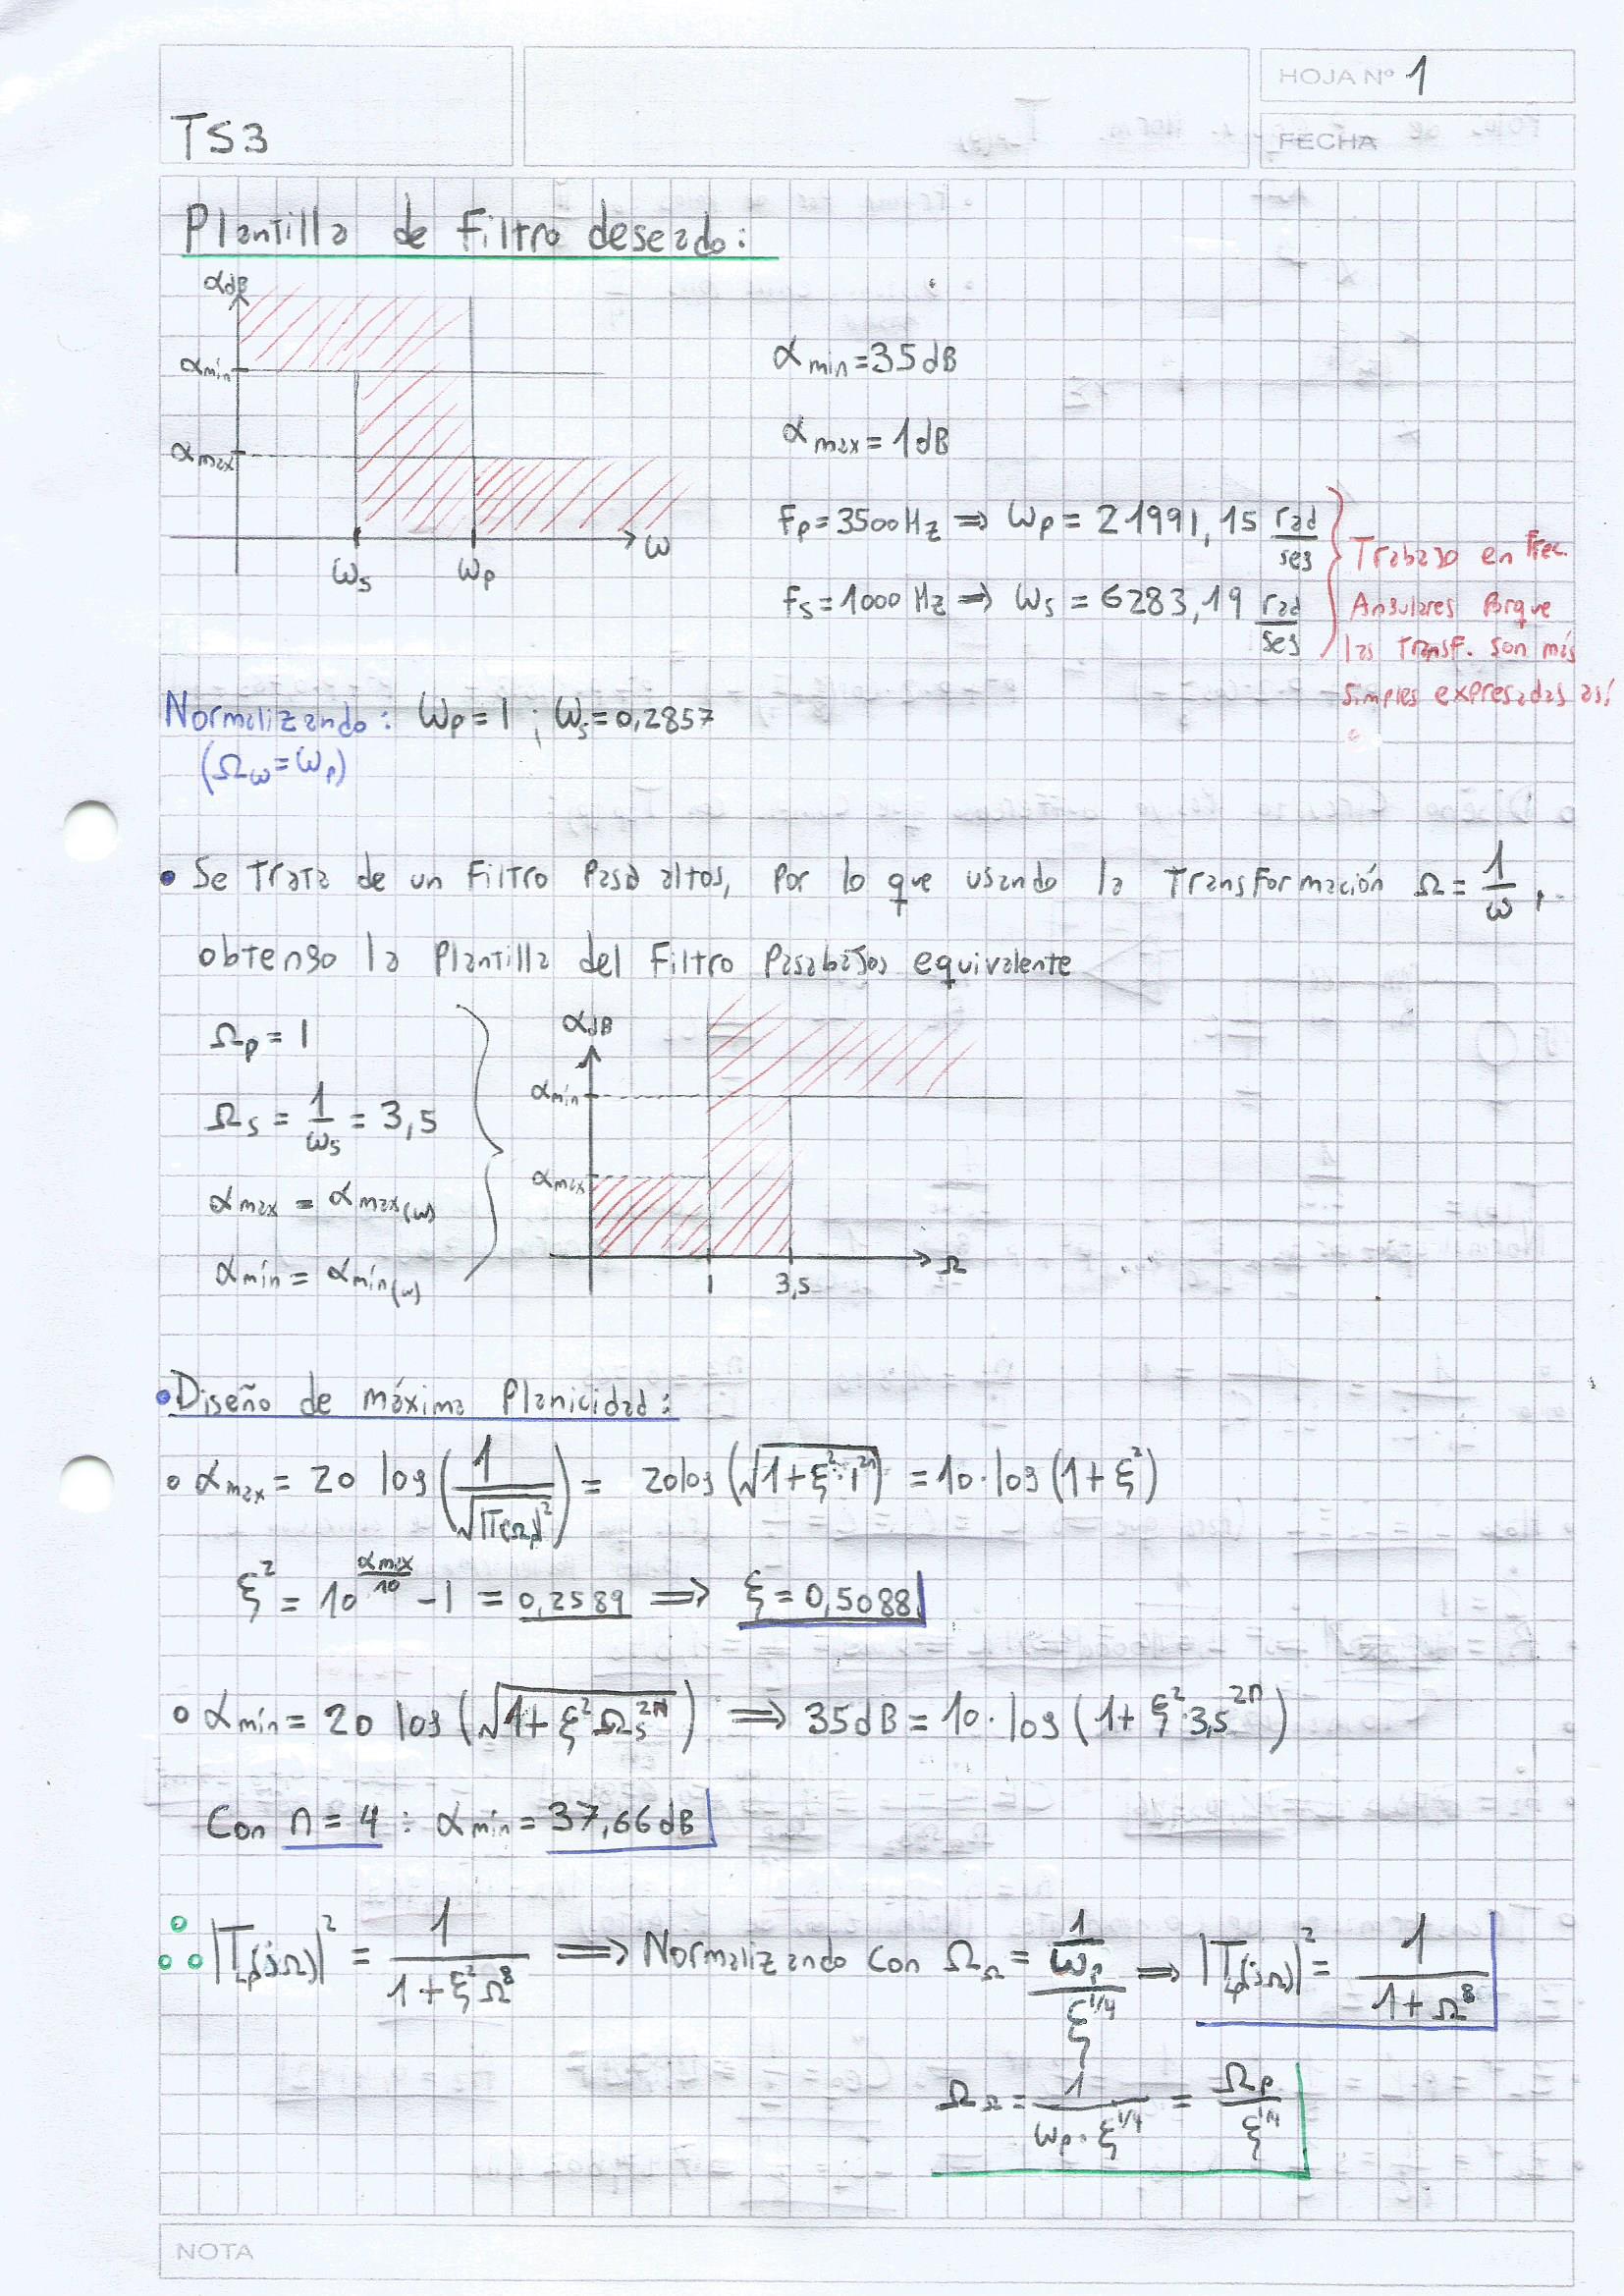 HOJA Nº 1
TS3
FECHA
Plantilla de Filtro deseado:
αdB
αmín
αmax
ωs ωp ω
αmín = 35 dB
αmax = 1 dB
Fp = 3500 Hz ⇒ ωp = 21991,15 rad/seg
Fs = 1000 Hz ⇒ ωs = 6283,19 rad/seg
Trabajo en Frec.
Angulares Porque
las Transf. son más
simples expresadas así
Normalizando: ωp = 1 ; ωs = 0,2857
(Ωω = ωp)
• Se Trata de un Filtro Pasa altos, Por lo que usando la Transformación Ω = 1/ω,
obtengo la Plantilla del Filtro Pasabajos equivalente
Ωp = 1
Ωs = 1/ωs = 3,5
αmax = αmax(ω)
αmín = αmín(ω)
αdB
αmín
αmax
1 3,5 Ω
• Diseño de máxima Planicidad:
∘ αmax = 20 log (1/√|T(Ωp)|²) = 20 log (√(1+ξ²·1²ⁿ)) = 10·log (1+ξ²)
ξ² = 10^(αmax/10) - 1 = 0,2589 ⇒ ξ = 0,5088
∘ αmín = 20 log (√(1+ξ²Ωs²ⁿ)) ⇒ 35 dB = 10·log (1+ξ²·3,5²ⁿ)
Con n = 4 : αmín = 37,66 dB
∴ |TLP(jΩ)|² = 1/(1+ξ²Ω⁸) ⇒ Normalizando con ΩΩ = (1/ωp)/ξ^(1/4) ⇒ |TLP(jΩ)|² = 1/(1+Ω⁸)
ΩΩ = 1/(ωp·ξ^(1/4)) = Ωp/ξ^(1/4)
NOTA